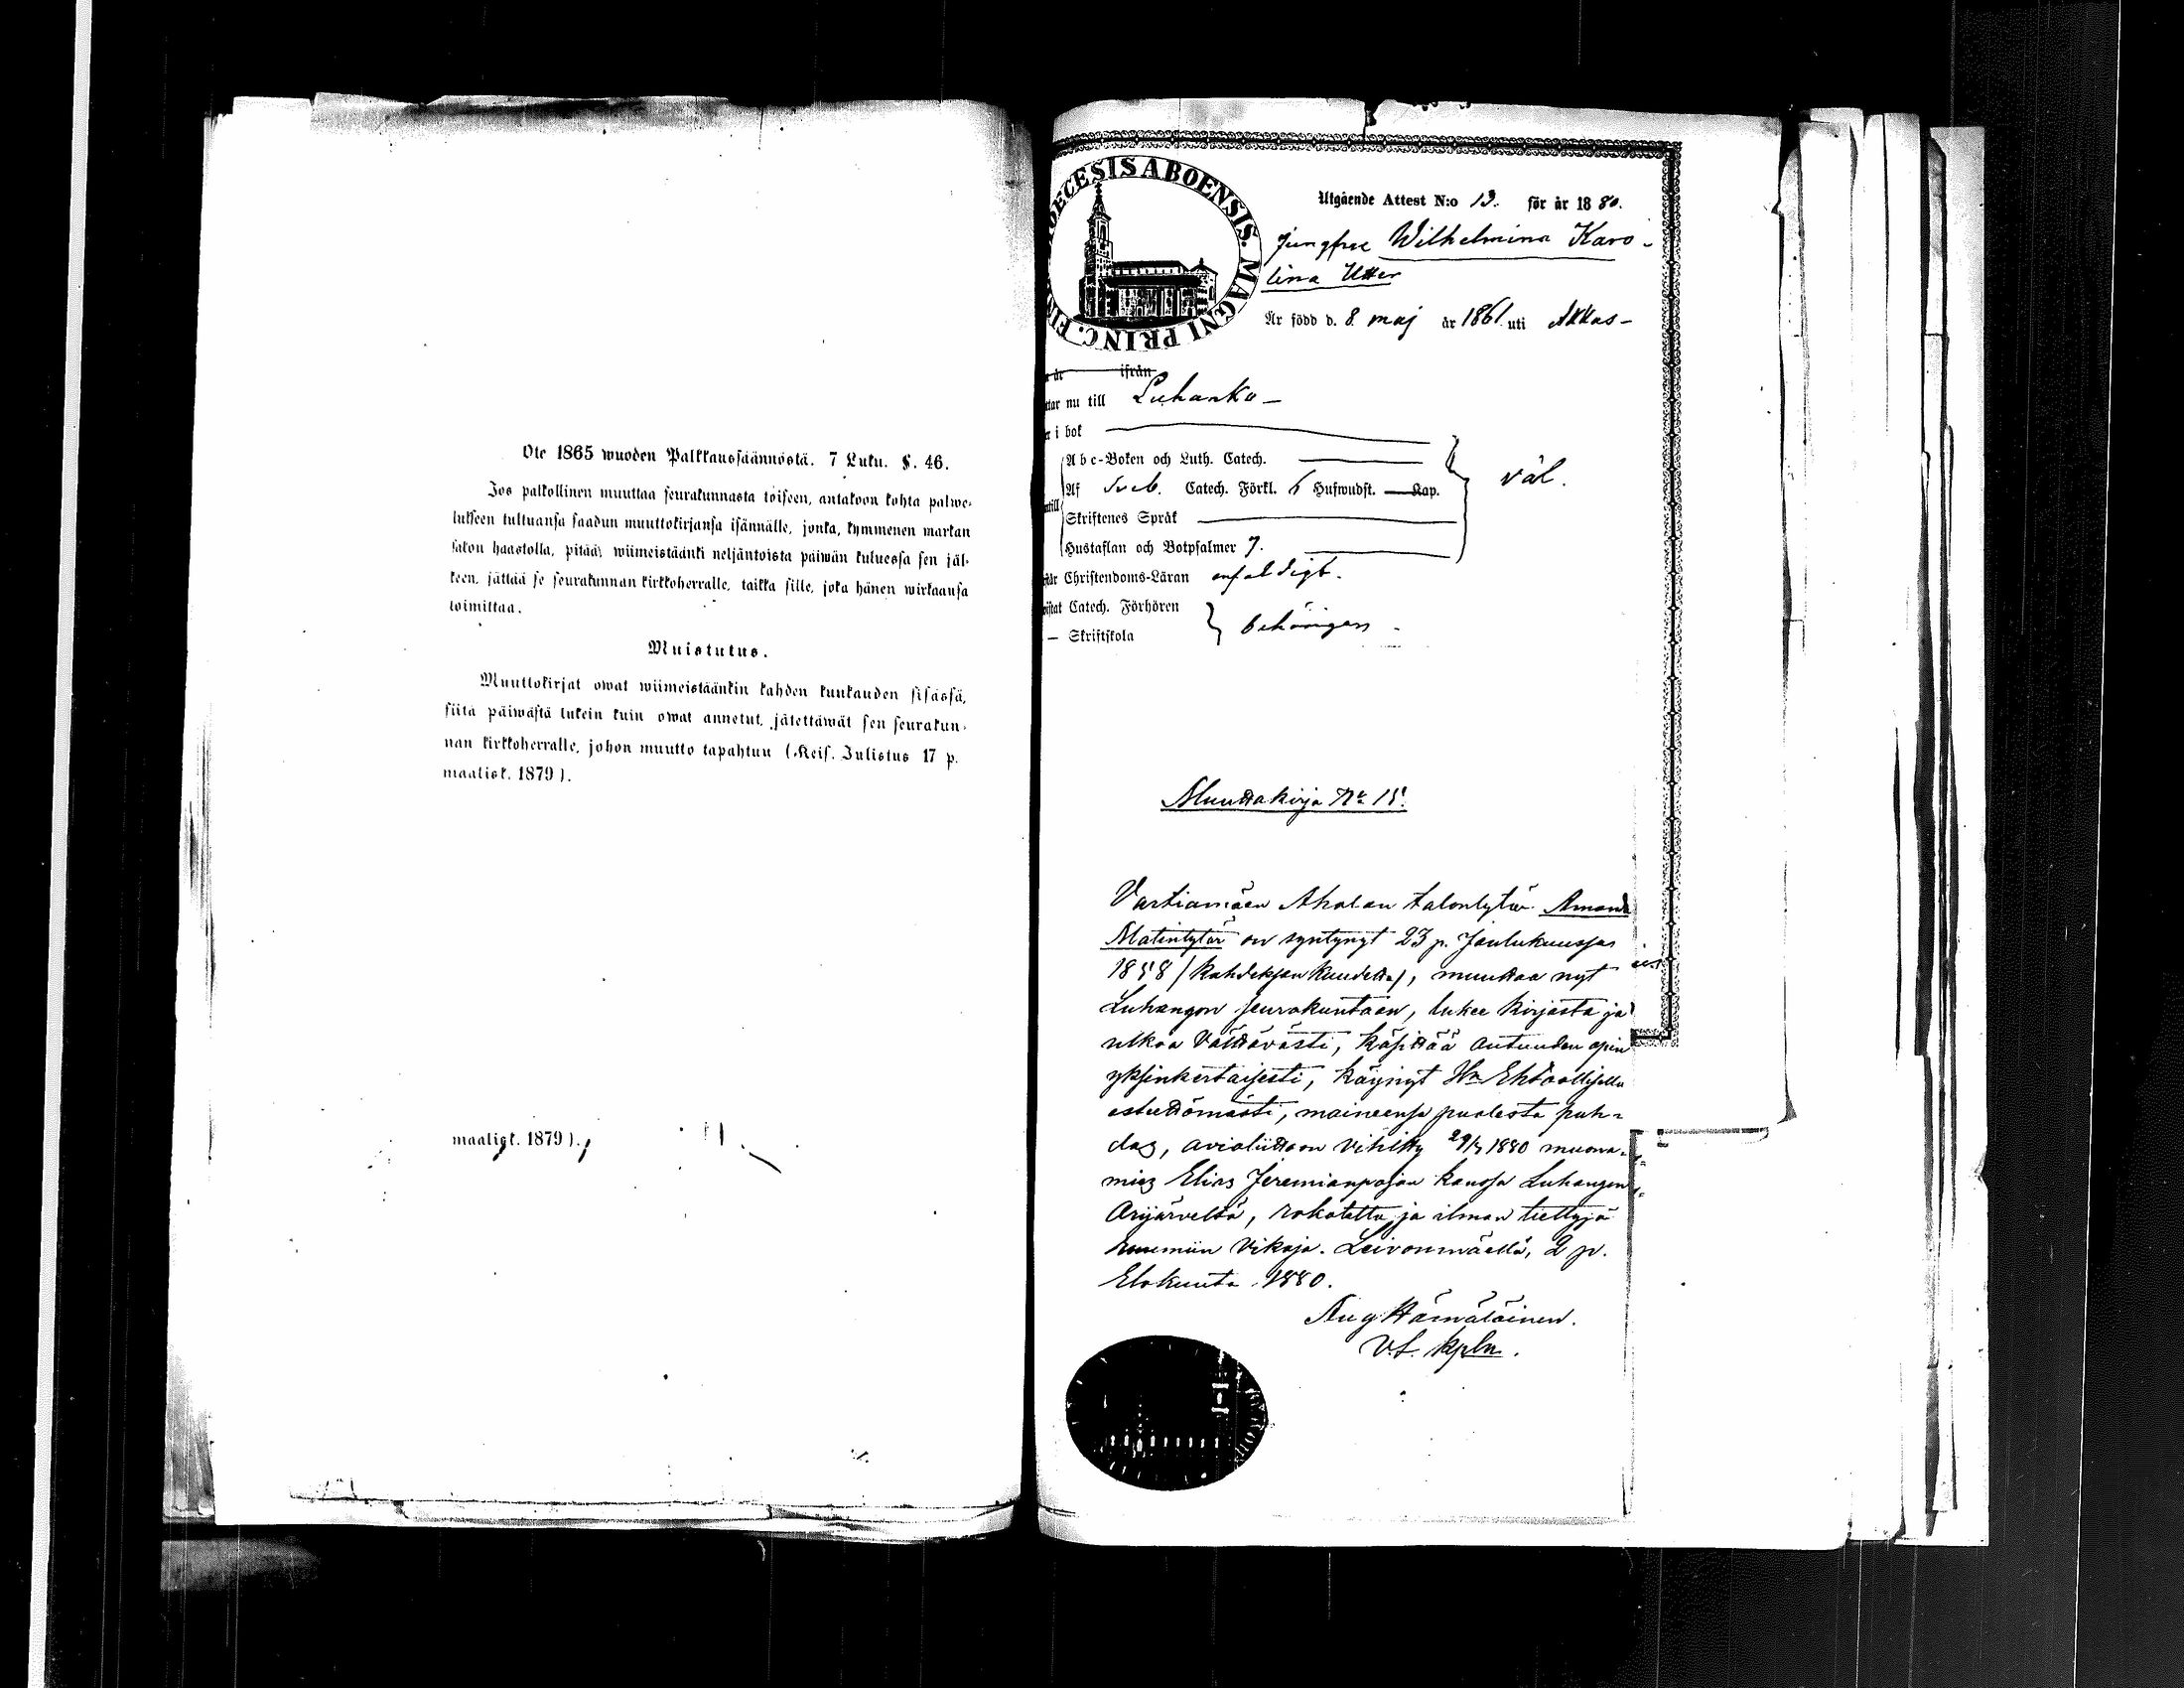 Ote 1865 wuoden Palkkaussäännöstä. 7 Luku. §. 46.
Jos palkollinen muuttaa seurakunnasta toiseen, antakoon kohta palwe-
lukseen tultuansa saadun muuttokirjansa isännälle, jonka, kymmenen markan
sakon haastolla, pitää wiimeistäänki neljäntoista päiwän kuluessa sen jäl-
keen, jättää se seurakunnan kirkkoherralle, taikka sille, joka hänen wirkaansa
toimittaa.
Muistutus.
Muuttokirjat owat wiimeistäänkin kahden kuukauden sisässä,
siitä päiwästä lukein kuin owat annetut, jätettäwät sen seurakun-
nan kirkkoherralle, johon muutto tapahtuu (Keis. Julistus 17 p.
maalisk. 1879).
maalisk. 1879).
DIOECESIS ABOENSIS. MAGNI PRINC. FIN
Utgående Attest N:o 13. för år 1880.
Jungfru Wilhelmina Karo-
lina Utter
Är född d. 8. maj år 1861 uti Akkas-
år ifrån
nu till Luhanka -
i bok
Abc-Boken och Luth. Catech.
Af Sveb. Catech. Förkl. 6 Hufwudst. Kap. väl.
Skriftenes Språk
Hustaflan och Botpsalmer 7.
Christendoms-Läran enfaldigt.
Catech. Förhören
— Skriftskola behörigen -
Muuttokirja No 15.
Vartiamäen Aholan talontytär Amanda
Matintytär on syntynyt 23 p. Joulukuussa
1858 (kahdeksan kuudetta), muuttaa nyt
Luhangon seurakuntaan, lukee kirjasta ja
ulkoa Välttävästi, käsittää autuuden opin
yksinkertaisesti, käynyt Hn Ehtoollisella
esteettömästi, maineensa puolesta puh-
das, avioliittoon vihitty 29/3 1880 muona-
mies Elias Jeremianpojan kanssa Luhangon
Arijärveltä, rokotettu ja ilman tiettyjä
ruumiin vikoja. Leivonmäellä, 2 p.
Elokuuta 1880.
Aug Hämäläinen.
V.t. kpln.